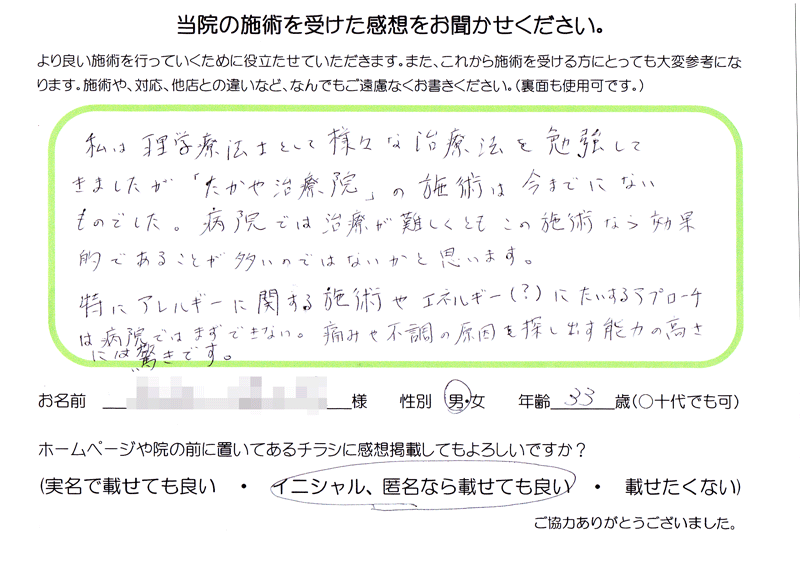 当院の施術を受けた感想をお聞かせください。
より良い施術を行っていくために役立たせていただきます。また、これから施術を受ける方にとっても大変参考にな
ります。施術や、対応、他店との違いなど、なんでもご遠慮なくお書きください。（裏面も使用可です。）
私は理学療法士として様々な治療法を勉強して
きましたが「たかや治療院」の施術は今までにない
ものでした。病院では治療が難しくともこの施術なら効果
的であることが多いのではないかと思います。
特にアレルギーに関する施術やエネルギー(?)にたいするアプローチ
は病院ではまずできない。痛みや不調の原因を探し出す能力の高さ
には驚きです。
お名前 様 性別 男・女 年齢 33 歳(○十代でも可)
ホームページや院の前に置いてあるチラシに感想掲載してもよろしいですか？
(実名で載せても良い ・ イニシャル、匿名なら載せても良い ・ 載せたくない)
ご協力ありがとうございました。